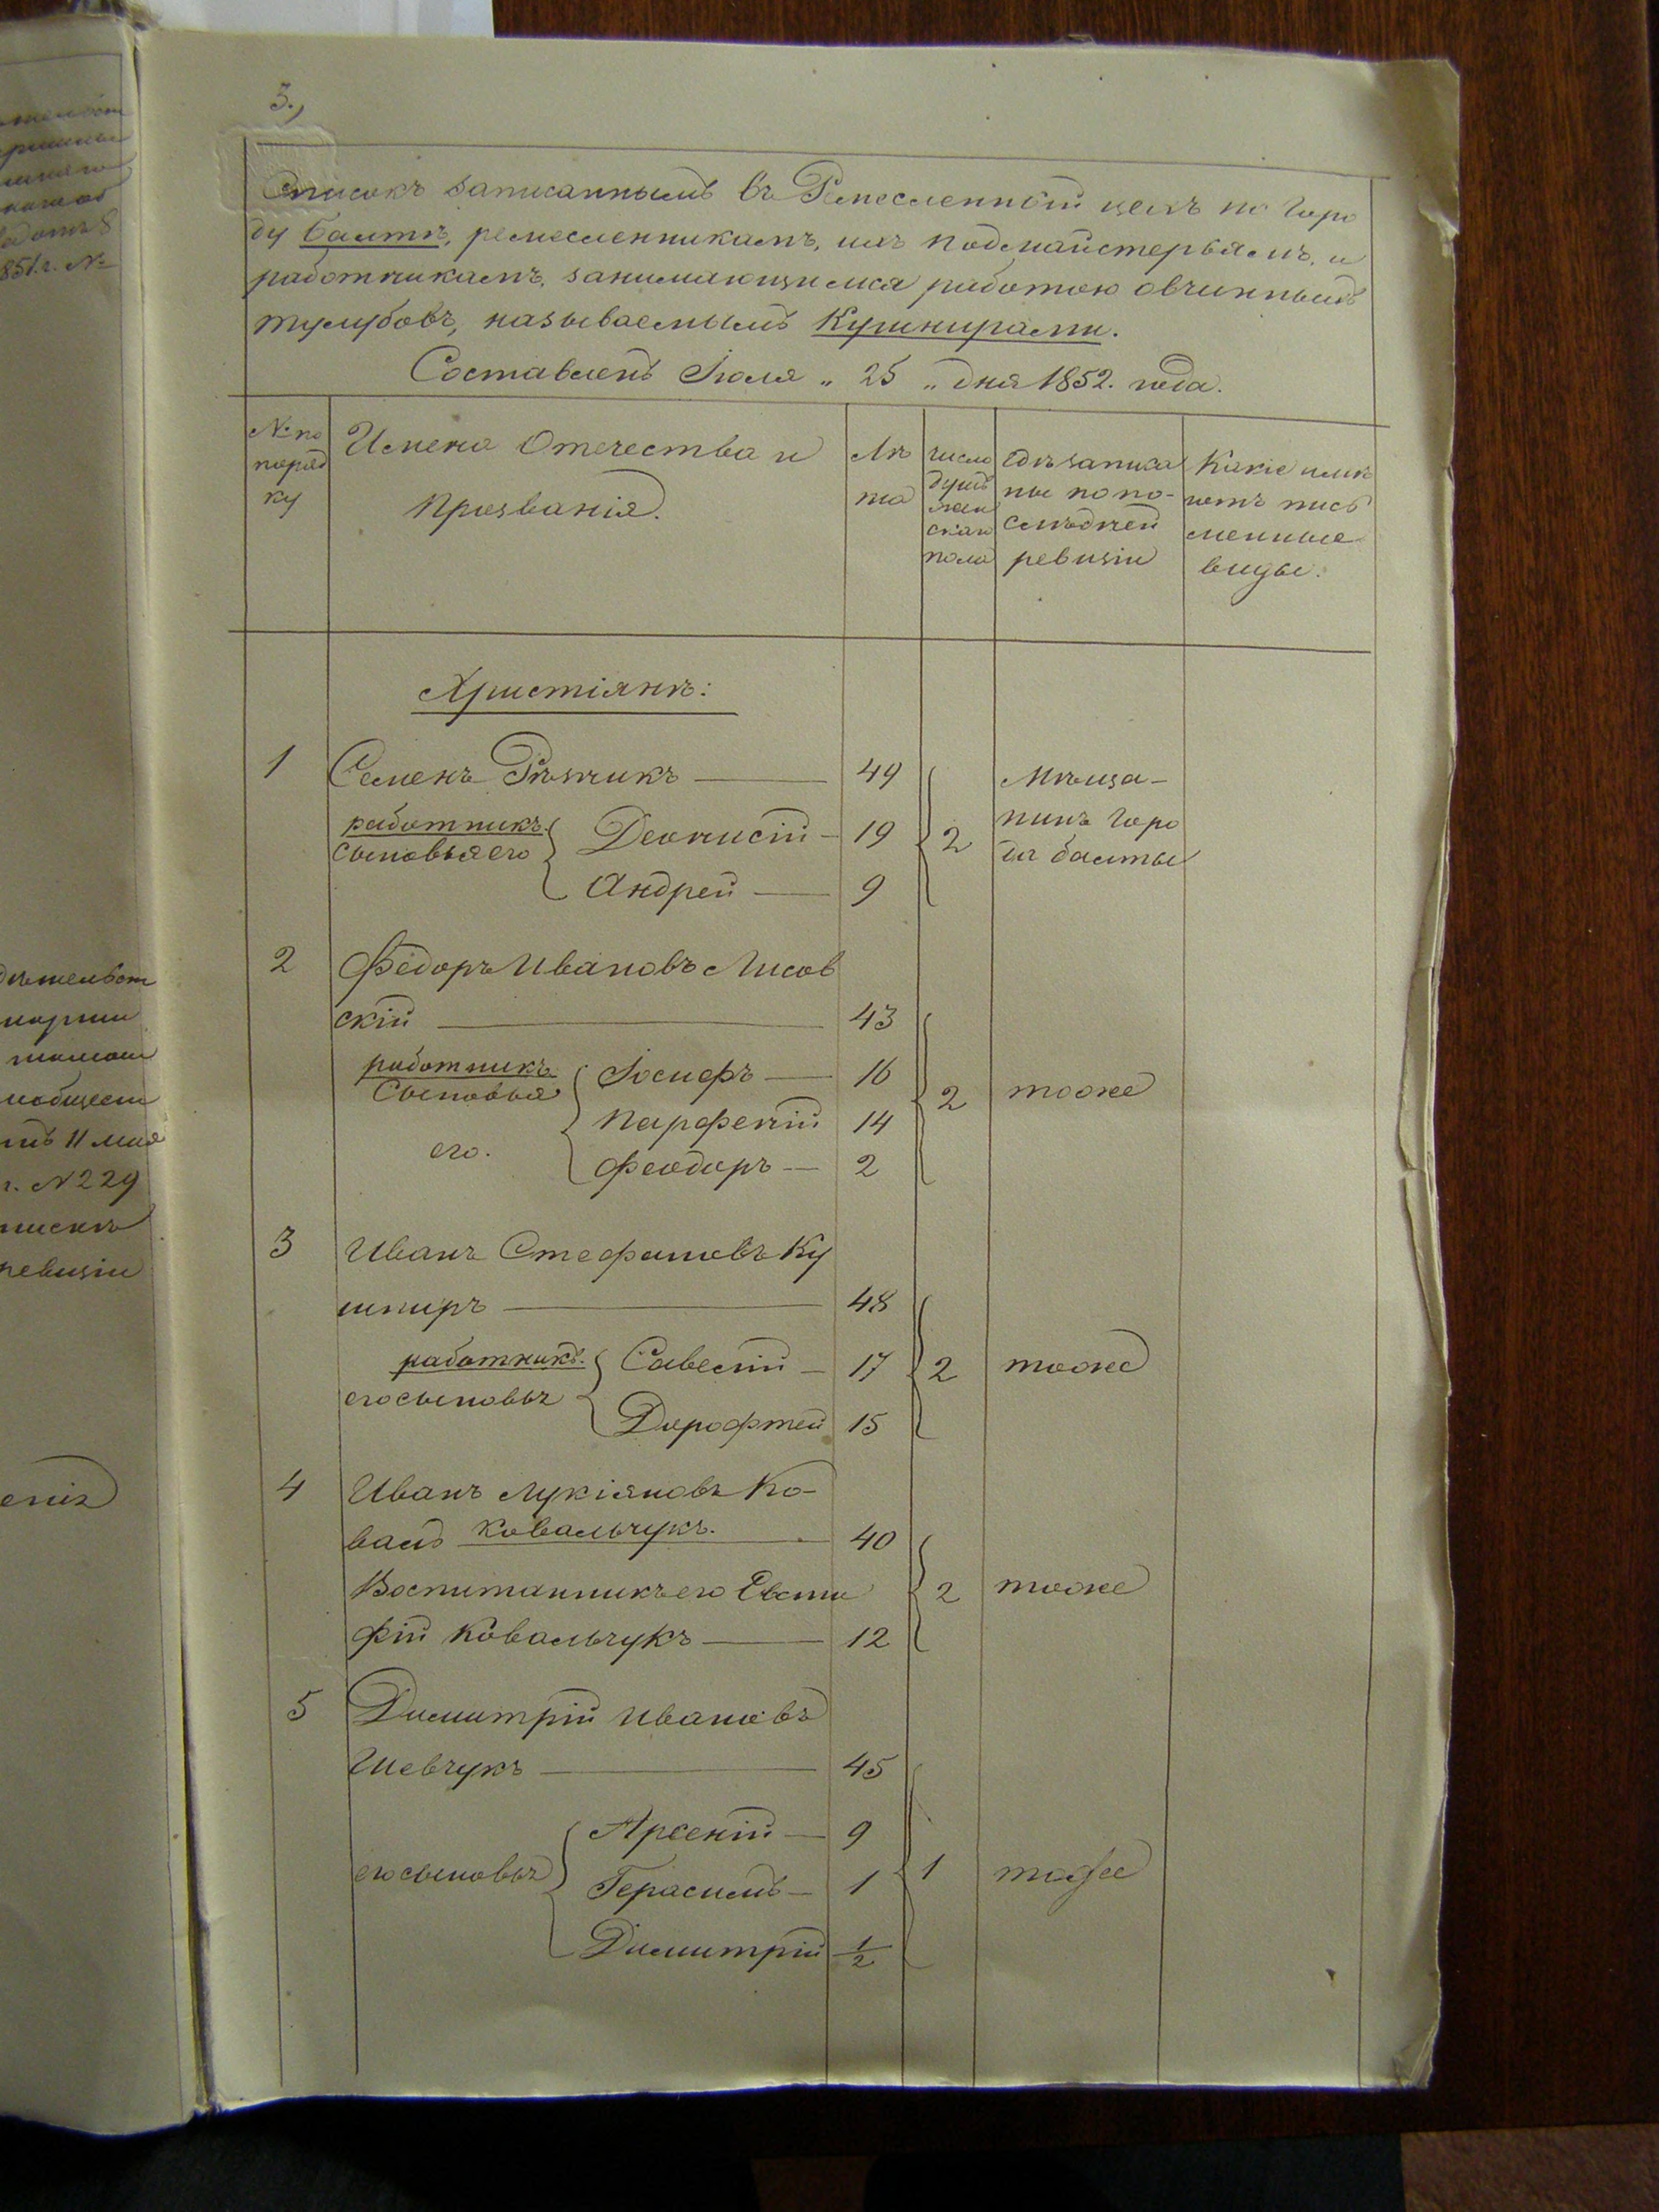 3.,
Списокъ записаннымъ въ Ремесленный цехъ по Горо
ду Балтѣ, ремесленникамъ, ихъ подмайстерьямъ, и
работникамъ, занимающимся работою овчинныхъ
тулубовъ, называемымъ Кушнирами.
Составленъ Іюля „ 25 „ дня 1852. года.
№ по
поряд
ку
Имена Отечества и
Прозванія.
Лѣ
та
число
душъ
муж
скаго
пола
Гдѣ записа
ны по по-
слѣдней
ревизіи
Какіе имѣ
ютъ пись
менные
виды.
Христіянъ:
1 Семенъ Рѣзникъ — 49
работникъ
сыновья его
Деонисій — 19
Андрей — 9
2
Мѣща-
нинъ Горо
да Балты
2 Федоръ Ивановъ Лисов
скій — 43
работникъ
Сыновья
его.
Іосифъ — 16
Парфеній 14
Феодоръ — 2
2 тоже
3 Иванъ Стефановъ Ку
шниръ — 48
работникъ.
его сыновья
Савелій — 17
Дорофтей 15
2 тоже
4 Иванъ Лукіяновъ Ко-
валь Ковальчукъ. 40
Воспитанникъ его Евсти
фій Ковальчукъ — 12
2 тоже
5 Димитрій Ивановъ
Шевчукъ — 45
его сыновья
Арсеній — 9
Герасимъ — 1
Димитрій 1/2
1 тоже
851 г. №
11 мая
г. № 229
ревизіи